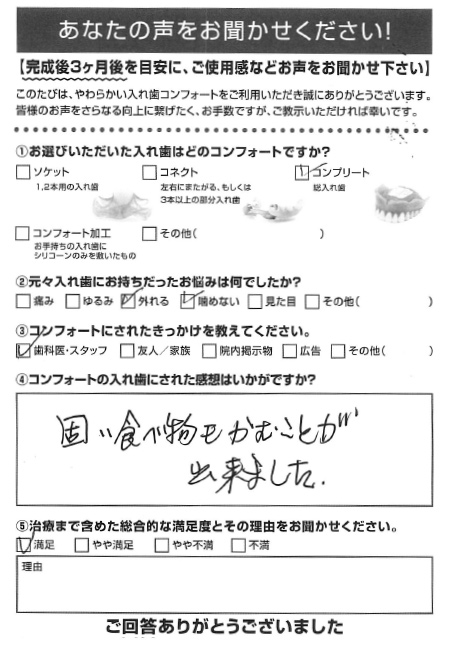 あなたの声をお聞かせください!
【完成後3ヶ月後を目安に、ご使用感などお声をお聞かせ下さい】
このたびは、やわらかい入れ歯コンフォートをご利用いただき誠にありがとうございます。
皆様のお声をさらなる向上に繋げたく、お手数ですが、ご教示いただければ幸いです。
①お選びいただいた入れ歯はどのコンフォートですか?
ソケット
1,2本用の入れ歯
コネクト
左右にまたがる、もしくは
3本以上の部分入れ歯
コンプリート
総入れ歯
コンフォート加工
お手持ちの入れ歯に
シリコーンのみを敷いたもの
その他( )
②元々入れ歯にお持ちだったお悩みは何でしたか?
痛み ゆるみ 外れる 噛めない 見た目 その他( )
③コンフォートにされたきっかけを教えてください。
歯科医・スタッフ 友人/家族 院内掲示物 広告 その他( )
④コンフォートの入れ歯にされた感想はいかがですか?
固い食べ物もかむことが
出来ました.
⑤治療まで含めた総合的な満足度とその理由をお聞かせください。
満足 やや満足 やや不満 不満
理由
ご回答ありがとうございました